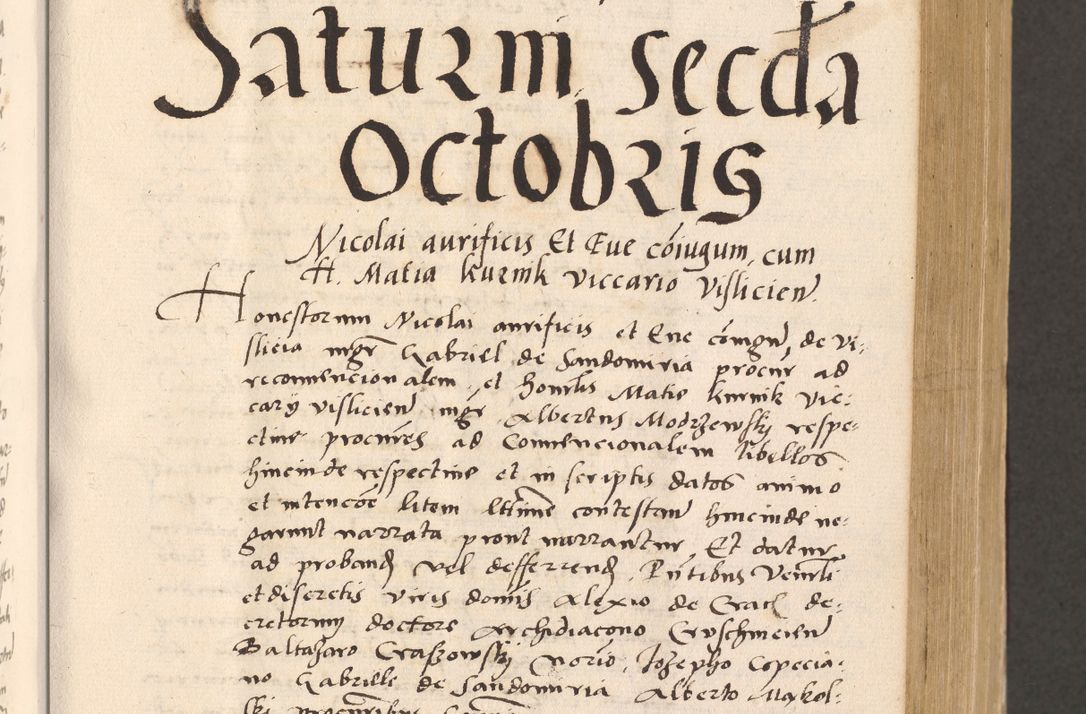 Saturni secda
Octobris
Nicolai aurificis Et Eue coiugum, cum
H. Matia kurnik viccario vislicien
Honestorum Nicolai aurificis et Eue coniugu, de vi-
slicia mgr Gabriel de Sandomiria procur ad
reconuencionalem, et honrlis Matie kurnik vic-
carij vislicien mgr Albertus Modrzewskj respe-
ctiue procures ad Conuencionalem libellos
hincinde respectiue et in scriptis datos animo
et intencoe litem lttime contestan hincinde ne-
garunt narrata pront narrantur, Et datur
ad proband vel defferrend, Pntibus Venrli
et discretis viris domis Alexio de Crac de-
cretorum doctore Archidiacono Cruschwicien
Baltazaro Graszowskj norio, Jozepho Copecia-
no Gabriele de Sandomiria Alberto Makol-